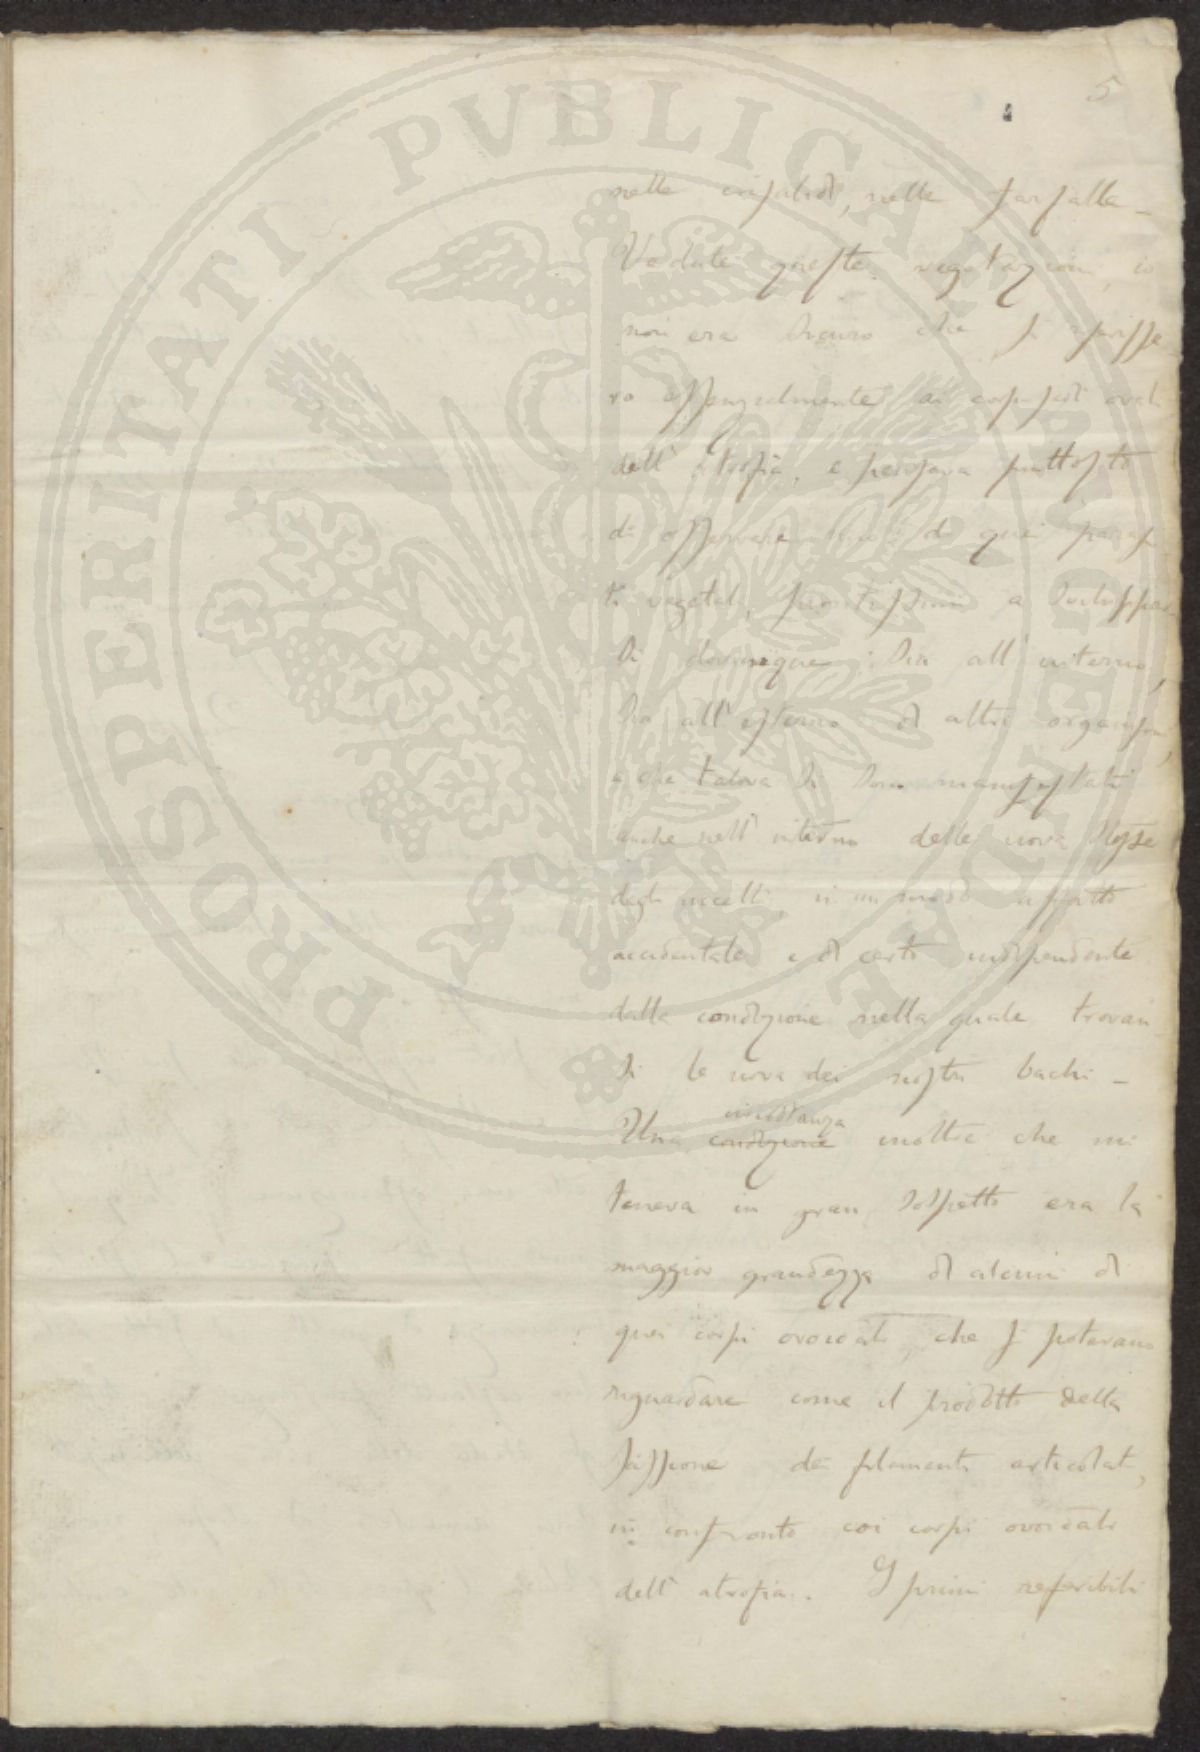 PROSPERITATI PVBLICAE AVGENDAE
5
nelle crisalidi, nelle farfalle –
Vedute queste vegetazioni, io
non era sicuro che si riferisse
ro essenzialmente ai corpuscoli ovali
dell' atrofia, e pensava piuttosto
di osservare di quei paras
ti vegetali, prontissimi a sviluppar
si dovunque sia all' interno,
sia all' esterno di altri organismi,
e che talora si sono manifestati
anche nell' interno delle uova stesse
degli uccelli, in un modo affatto
accidentale e di certo indipendente
dalla condizione nella quale trovan
si le uova dei nostri bachi –
circostanza
Una condizione inoltre che mi
teneva in gran sospetto era la
maggior grandezza di alcuni di
quei corpi ovoidali, che si potevano
riguardare come il prodotto della
scissione dei filamenti articolati,
in confronto coi corpi ovoidali
dell' atrofia. I primi referibili